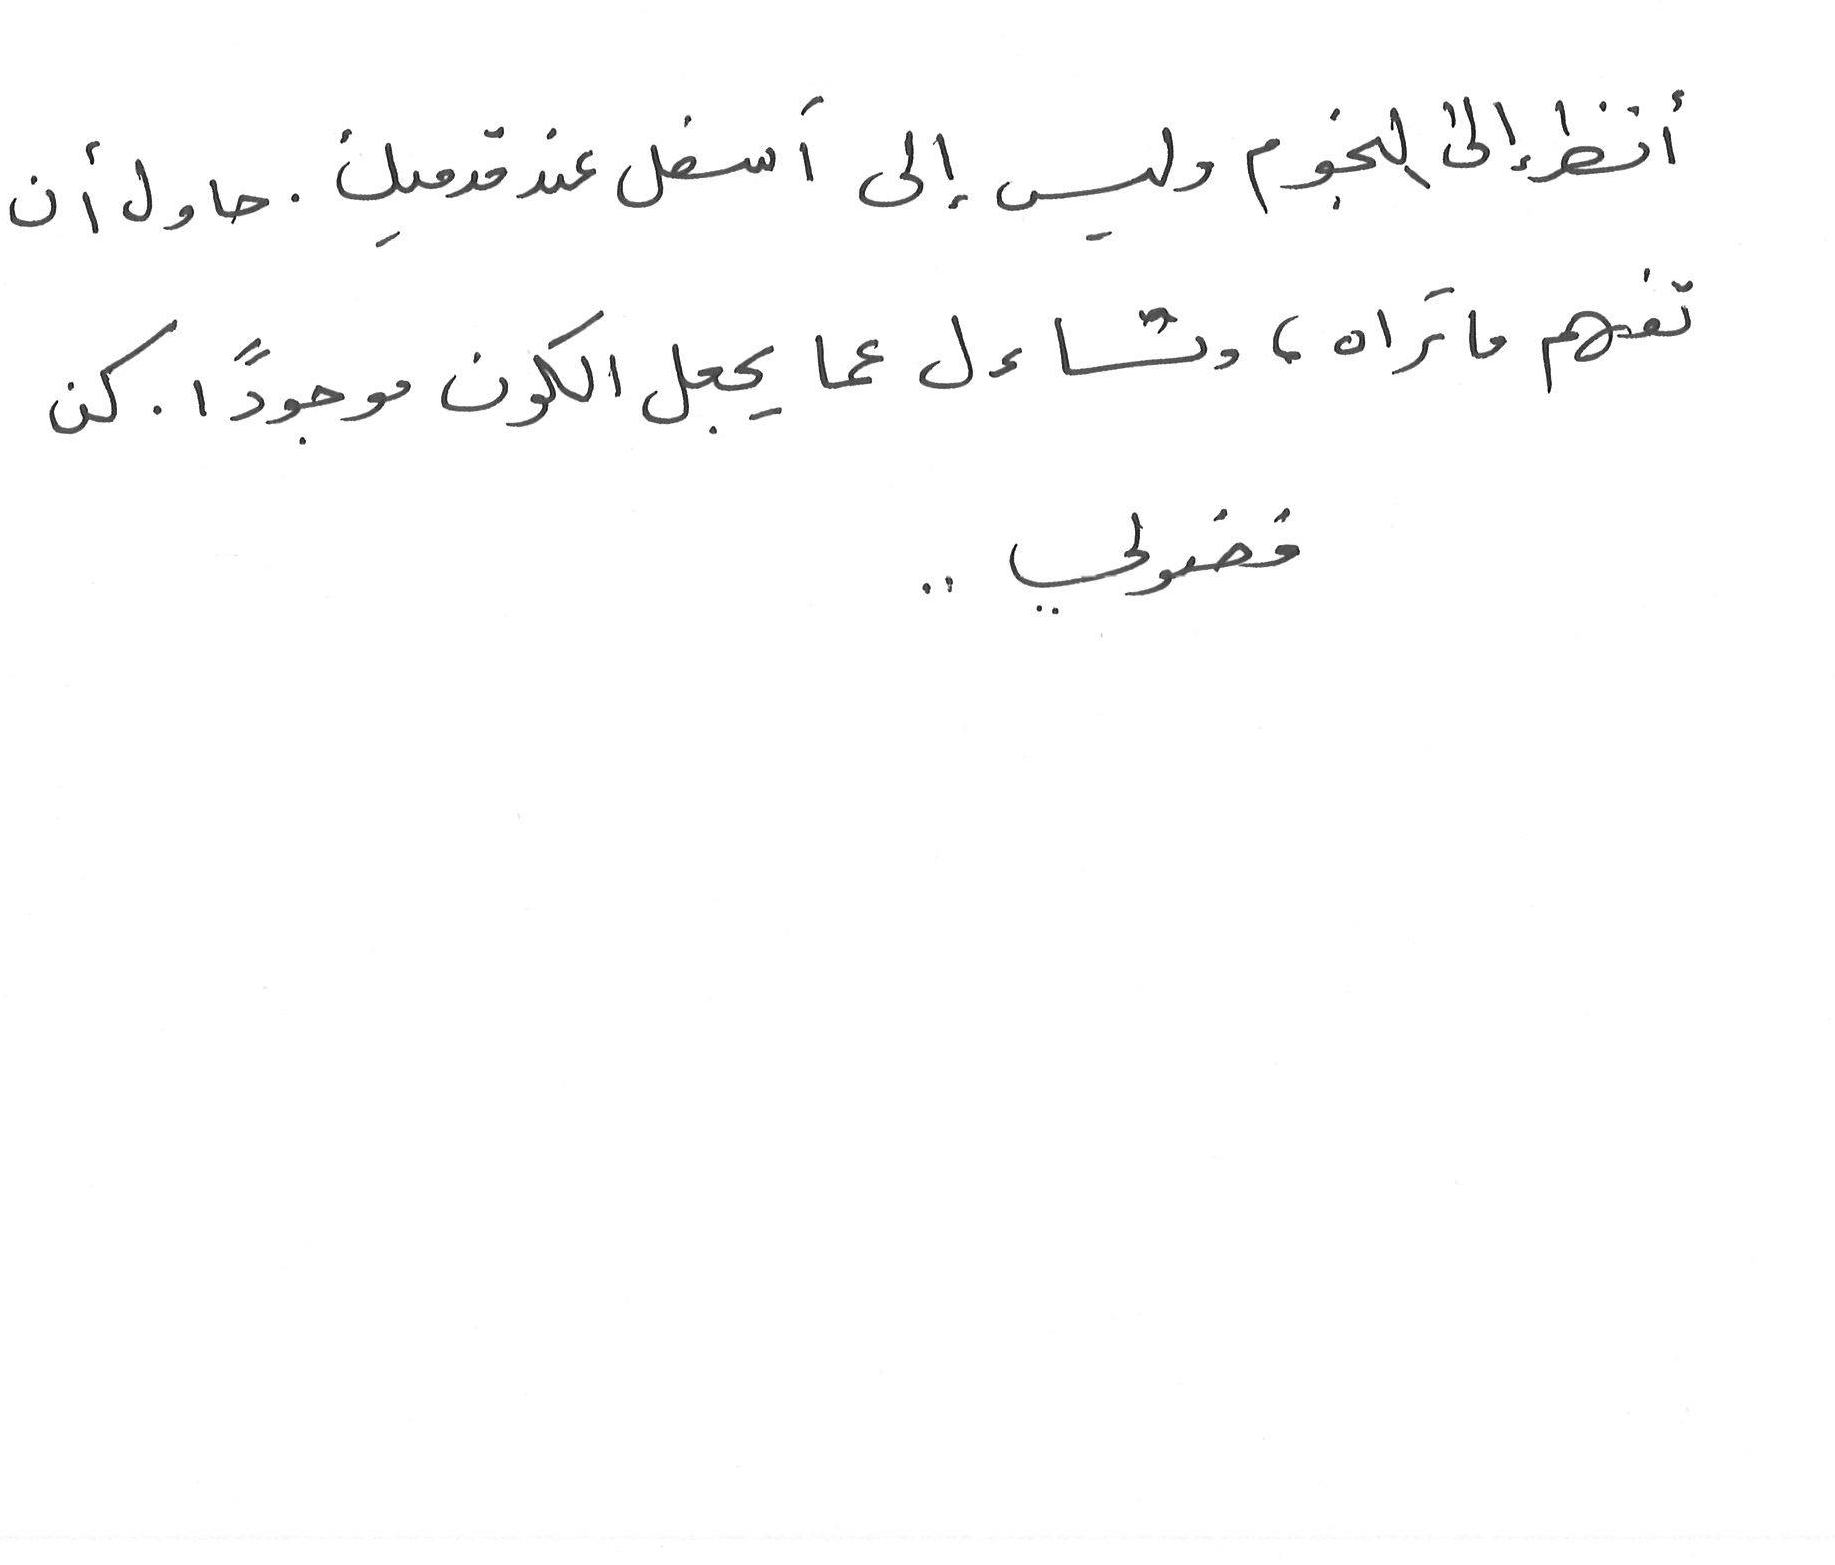 أنظر إلى النجوم وليس إلى أسفل عند قدميك. حاول أن
تفهم ما تراه، وتساءل عما يجعل الكون موجودًا. كن
فضولي ..